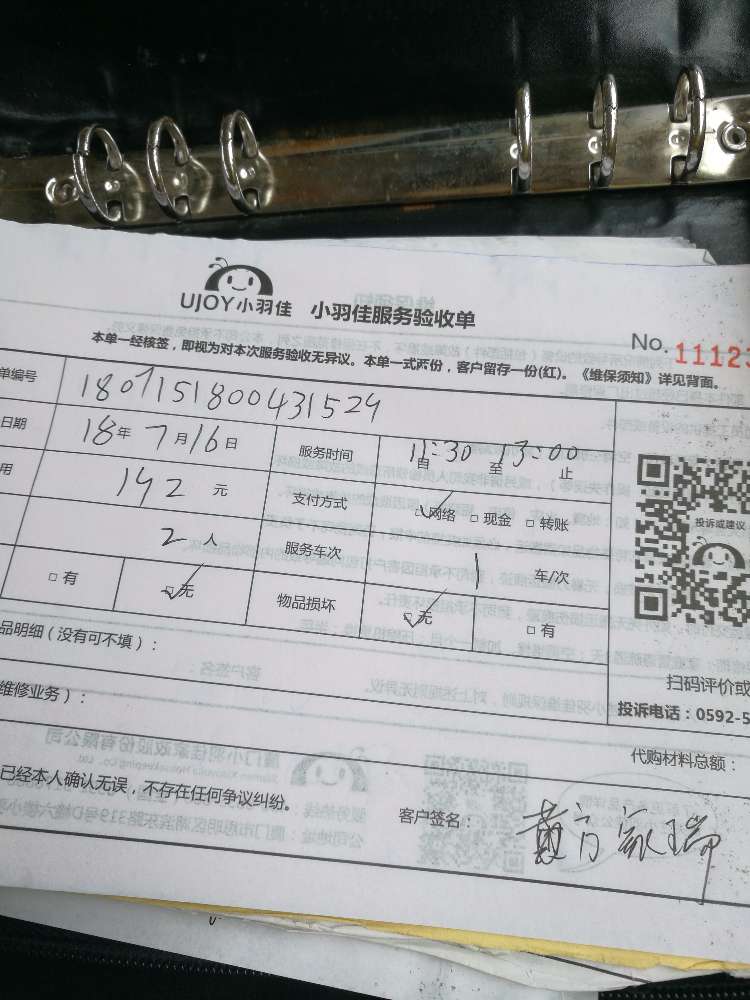 UJOY小羽佳 小羽佳服务验收单
No. 11123
本单一经核签，即视为对本次服务验收无异议。本单一式两份，客户留存一份(红)。《维保须知》详见背面。
单编号 1807151800431529
日期 18年7月16日 服务时间 11:30 自 至 13:00 止
用 142 元 支付方式 网络 现金 转账
2 人 服务车次 1 车/次
有 无 物品损坏 无 有
投诉或建议
品明细（没有可不填）：
扫码评价或
维修业务）：
投诉电话：0592-5
代购材料总额：
已经本人确认无误，不存在任何争议纠纷。
客户签名：